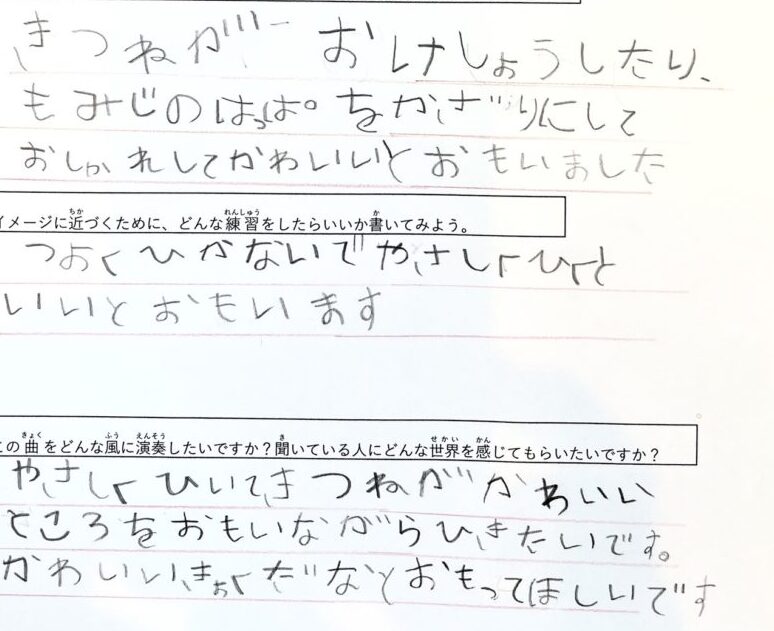 きつねが おけしょうしたり、
もみじのはっぱをかざりにして
おしゃれしてかわいいとおもいました
イメージに近づくために、どんな練習をしたらいいか書いてみよう。
つよくひかないでやさしくひくと
いいとおもいます
この曲をどんな風に演奏したいですか？聞いている人にどんな世界を感じてもらいたいですか？
やさしくひいてきつねがかわいい
ところをおもいながらひきたいです。
かわいいきょくだなとおもってほしいです